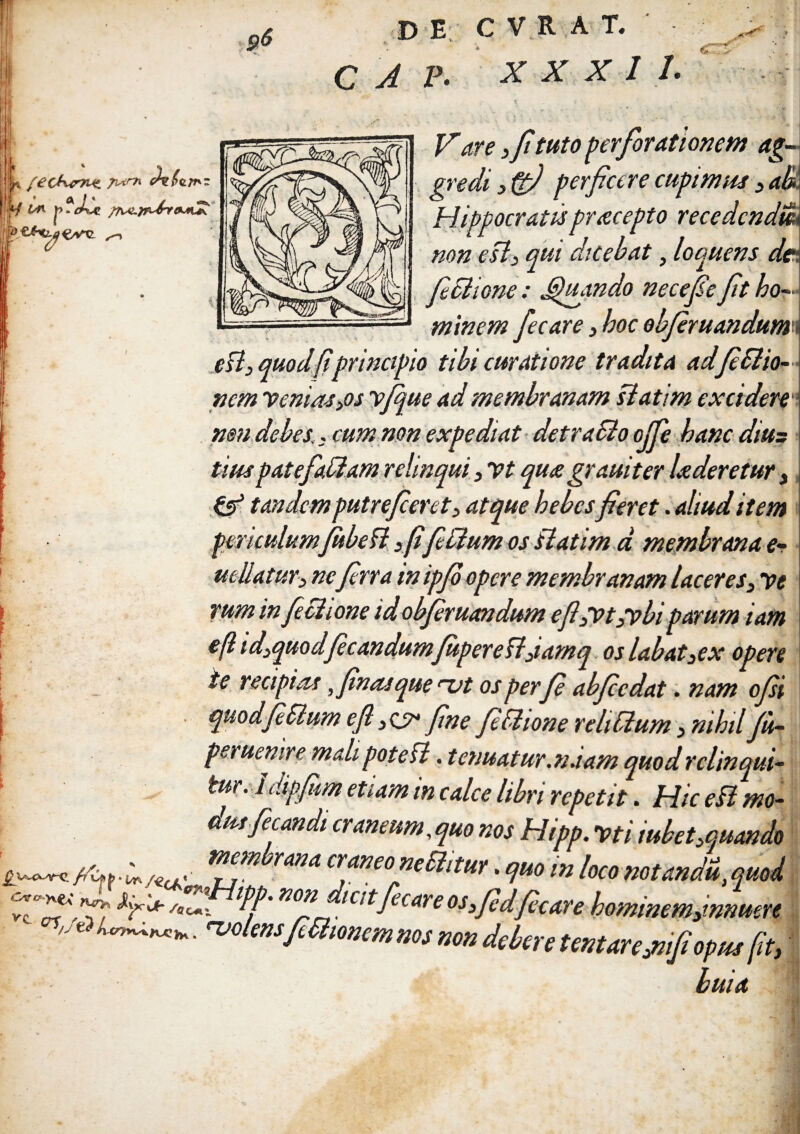 96
DE CVRAT.
CAP. XXXII.
QVare, si tuto perforationem ag-
gredi, & perficere cupimus, ab
Hippocratis præcepto recedendũ
non est, qui dicebat, loquens de
sectione: Quando necesse sit ho-
minem secare, hoc obseruandum
est, quod si principio tibi curatione tradita ad sectio-
nem venias, os vsque ad membranam statim excidere
non debes, cum non expediat detracto osse hanc diu=
tius patefactam relinqui, vt quæ grauiter læderetur,
& tandem putresceret, atque hebes fieret. aliud item
periculum subest, si sectum os statim à membrana e-
uellatur, ne serra in ipso opere membranam laceres, ve
rum in sectione id obseruandum est, vt, vbi parum iam
est id, quod secandum superest, iamq os labat, ex opere
te recipias, sinasque vt os per se abscedat. nam ossi
quod sectum est, & sine sectione relictum, nihil su-
peruenire mali potest. tenuatur.n.iam quod relinqui-
tur. Id ipsum etiam in calce libri repetit. Hic est mo-
dus secandi craneum, quo nos Hipp. vti iubet, quando
membrana craneo nectitur. quo in loco notandũ, quod
Hipp. non dicit secare os, sed secare hominem, innuere
volens sectionem nos non debere tentare, nisi opus sit,
huia
sectione non
quare Hipp. in sect.
craneu non dixit
os, sed hominem.